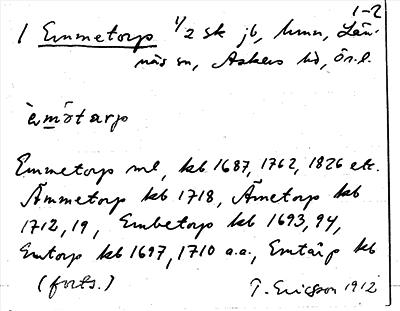 1-2
1 Emmetorp 1/2 sk jb, hmn, Län-
näs sn, Askers hd, Ör.l.
èmǝ̀tarp
Emmetorp ml, kb 1687, 1762, 1826 etc.
Ämmetorp kb 1718, Ämetorp kb
1712, 19, Embetorp kb 1693, 94,
Emtorp kb 1697, 1710 a.a., Emtärp kb
(forts.) T. Ericsson 1912